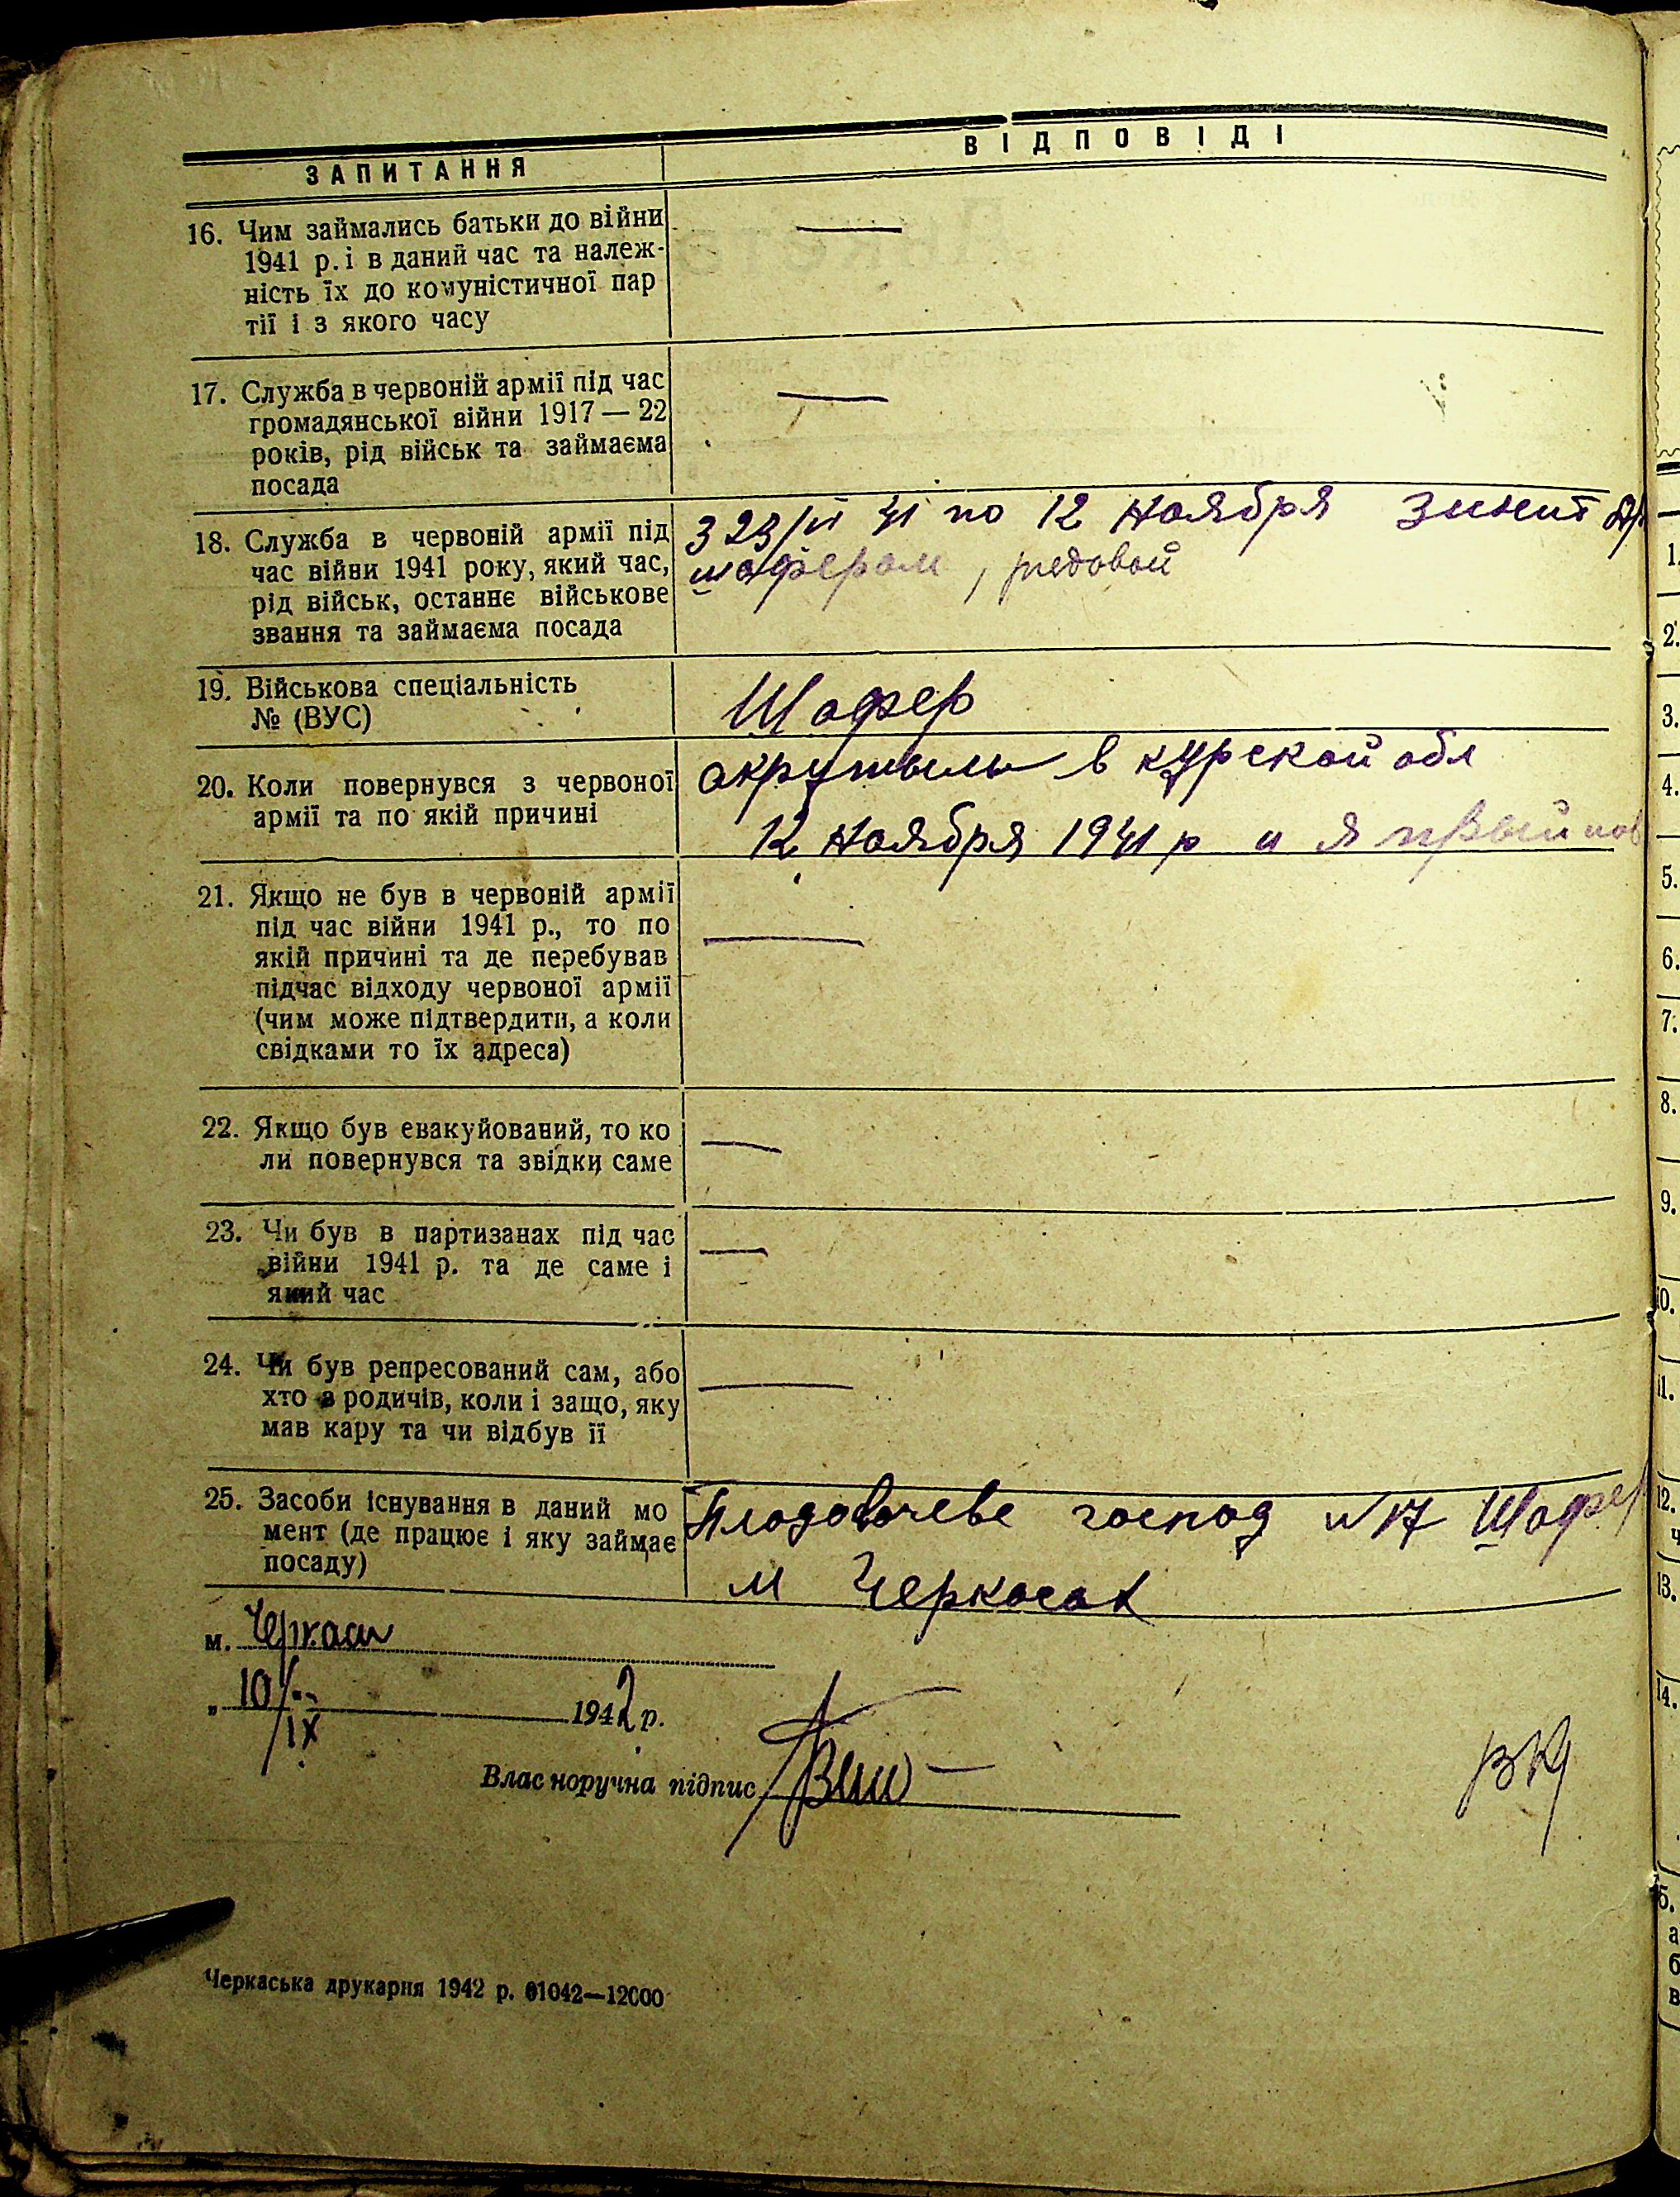 ЗАПИТАННЯ
ВІДПОВІДІ
16. Чим займались батьки до війни
1941 р. і в даний час та належ-
ність їх до комуністичної пар
тії і з якого часу
—
17. Служба в червоній армії під час
громадянської війни 1917 — 22
років, рід військ та займаєма
посада
—
18. Служба в червоній армії під
час війни 1941 року, який час,
рід військ, останнє військове
звання та займаєма посада
З 23/VI 41 по 12 Ноября Зиніт
шофером, редовой
19. Військова спеціальність
№ (ВУС)
Шофер
20. Коли повернувся з червоної
армії та по якій причині
окружыли в курской обл
12 Ноября 1941 р и я
21. Якщо не був в червоній армії
під час війни 1941 р., то по
якій причині та де перебував
підчас відходу червоної армії
(чим може підтвердити, а коли
свідками то їх адреса)
—
22. Якщо був евакуйований, то ко
ли повернувся та звідки саме
—
23. Чи був в партизанах під час
війни 1941 р. та де саме і
який час
—
24. Чи був репресований сам, або
хто з родичів, коли і защо, яку
мав кару та чи відбув її
—
25. Засоби існування в даний мо
мент (де працює і яку займає
посаду)
господ N 17 Шофер
м Черкасах
м. Черкаси
„ 10/IX 1942 р.
Власноручна підпис
Черкаська друкарня 1942 р. 01042—12000
1.
2.
3.
4.
5.
6.
7.
8.
9.
10.
11.
12.
13.
14.
15.
а
б
в